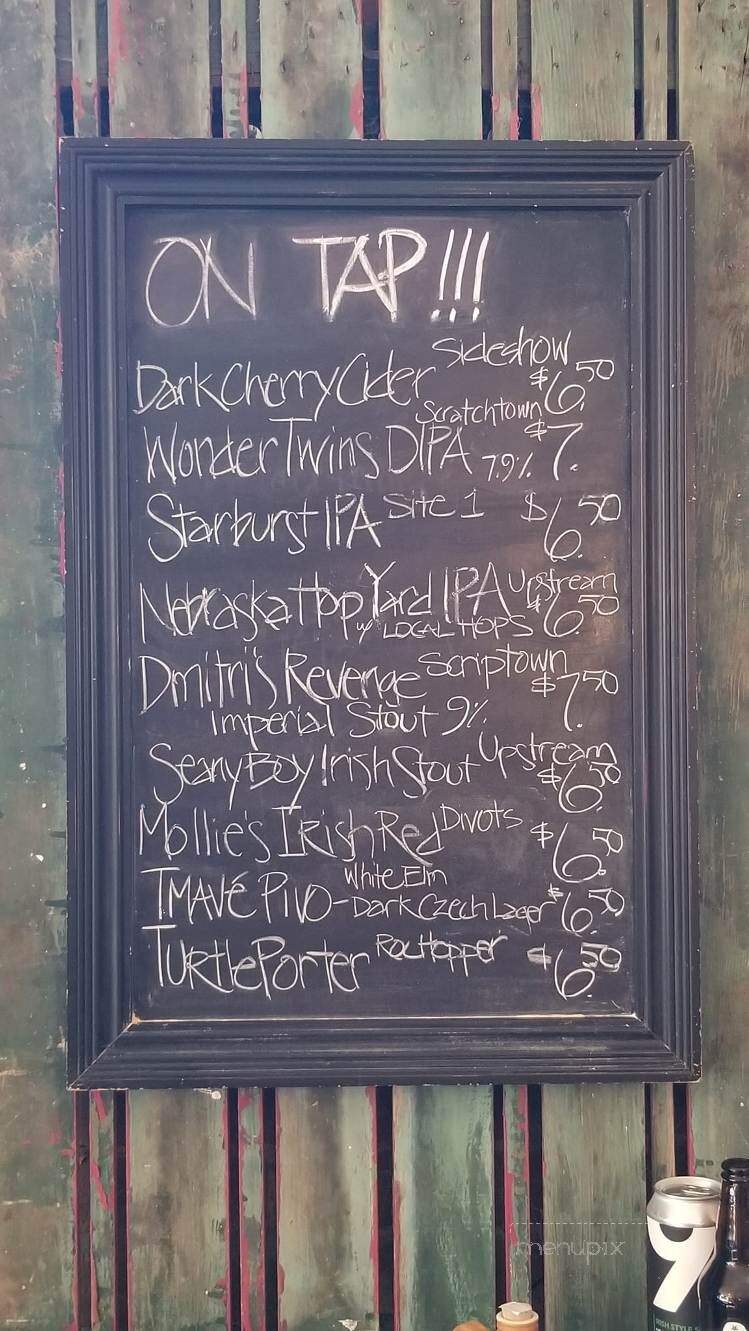 ON TAP!!!
Sideshow
Dark Cherry Cider $6.50
Scratchtown
Wonder Twins DIPA 7.9% $7.
Starburst IPA Site 1 $6.50
Nebraska Hop Yard IPA Upstream $6.50
w/ LOCAL HOPS
Dmitri's Revenge Scriptown $7.50
Imperial Stout 9%
Seany Boy Irish Stout Upstream $6.50
Mollie's Irish Red Divots $6.50
White Elm
TMAVÉ PIVO-Dark Czech Lager $6.50
Turtle Porter $6.50
menupix
9
IRISH STYLE